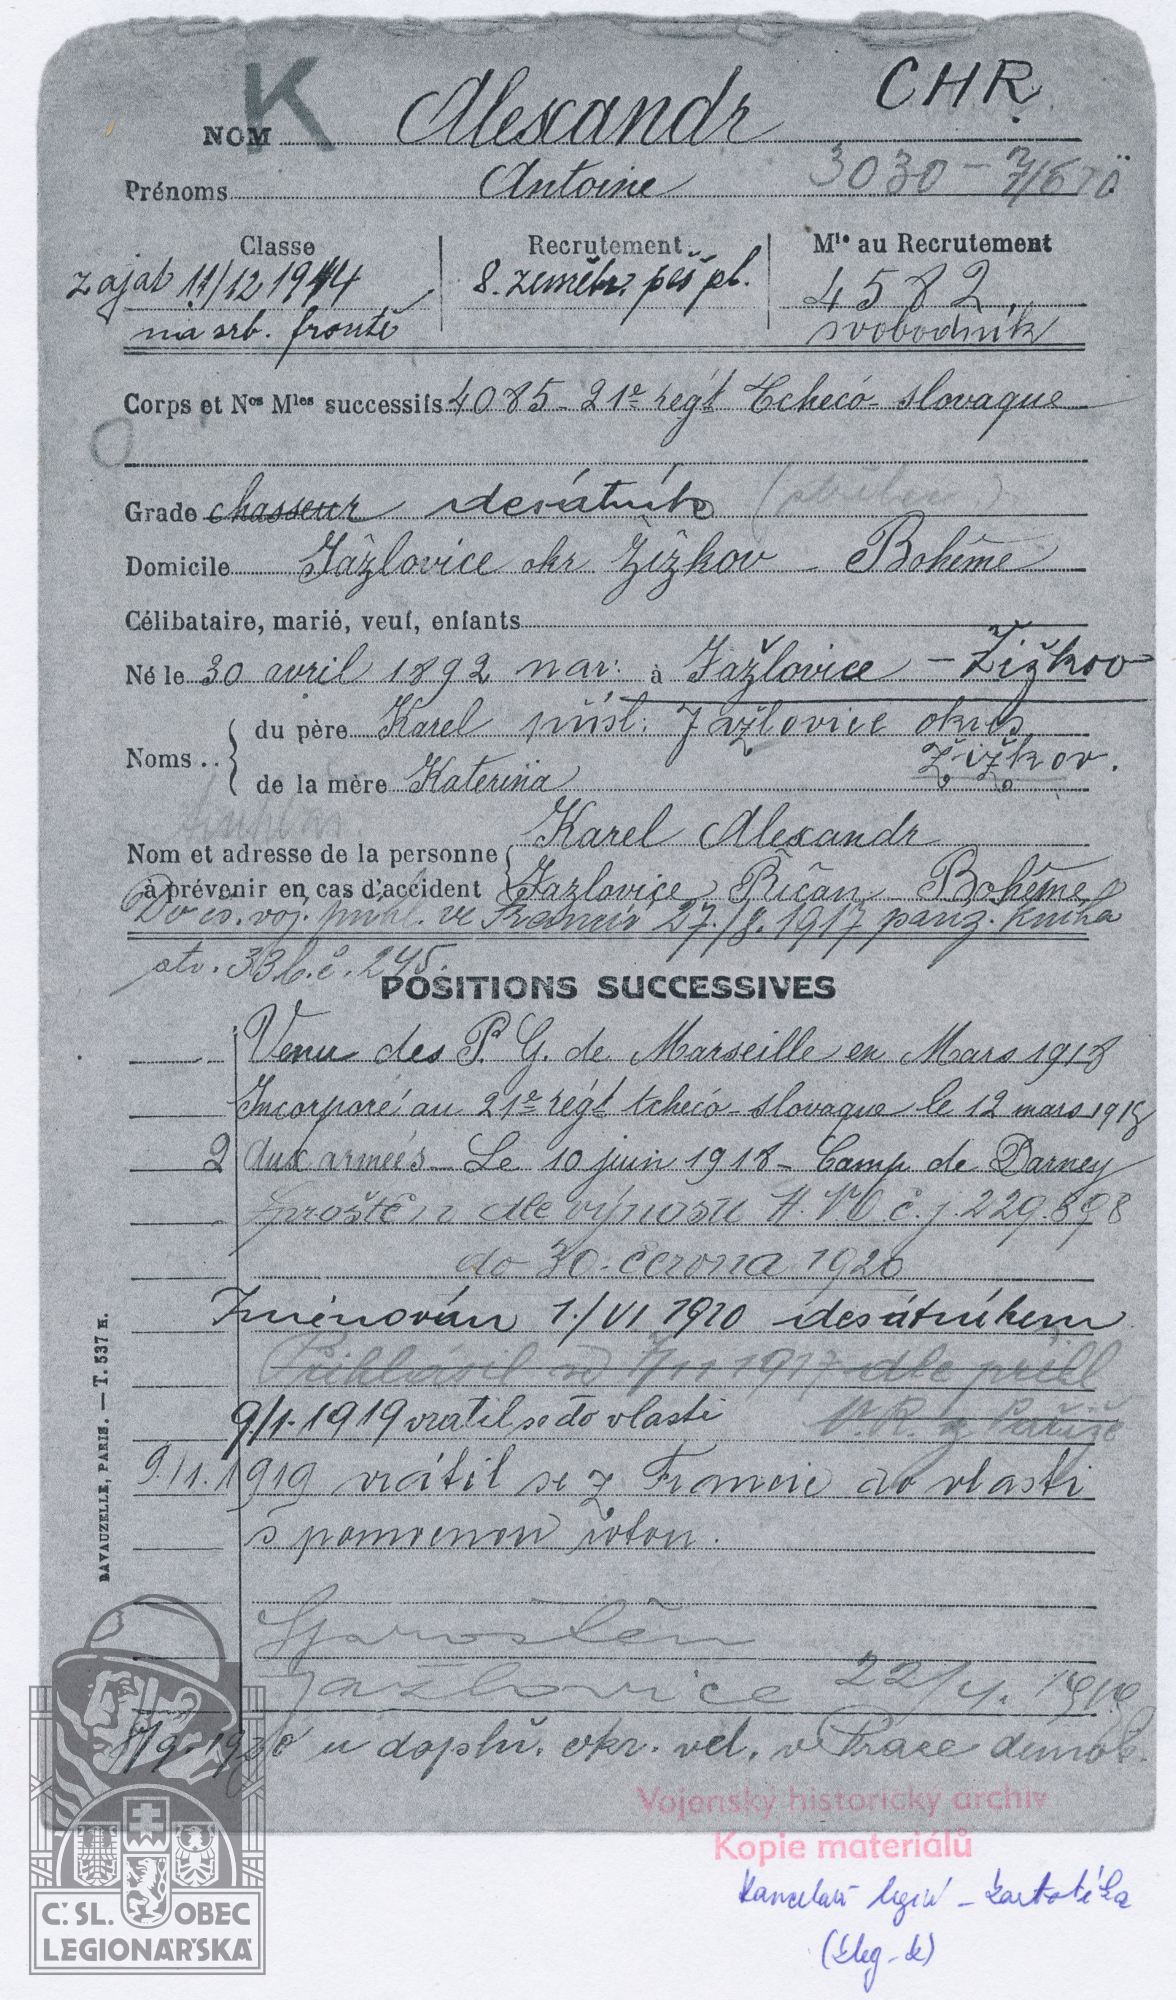 K CHR.
NOM Alexandr
Prénoms Antoine 3030 - 7/
Classe Recrutement Mle au Recrutement
zajat 11/12 1914 8. zeměbr. pěš pl. 4582
na srb. frontě svobodník
Corps et Nos Mles successifs 4085 - 21e régt Tchéco-slovaque
Grade chasseur desátník
Domicile Jažlovice okr. Žižkov - Bohême
Célibataire, marié, veuf, enfants
Né le 30 avril 1892 nar: à Jažlovice - Žižkov
du père Karel přísl: Jažlovice okres
Noms .. Žižkov.
de la mère Katerina
Karel Alexandr
Nom et adresse de la personne
à prévenir en cas d'accident Jazlovice Říčan Bohême
Do čs. voj. přihl. ve Francii 27./8. 1917 pařiz. kniha
str. 33 b. č. 245.
POSITIONS SUCCESSIVES
Venu des P. G. de Marseille en Mars 1918
Incorporé au 21e régt tchéco-slovaque le 12 mars 1918
2 Aux armées - Le 10 juin 1918 - Camp de Darney
Zproštěn dle výnosu H.V.O. č. j. 229.898
do 30. června 1920
Jmenován 1./VI 1920 desátníkem
Přihlásil se 7/11 1917 dle přihl
9/1. 1919 vrátil se do vlasti V.R. z Paříže
9.11.1919 vrátil se z Francie do vlasti
s pomocnou rotou.
Zproštěn
Jažlovice 22/4. 1919
1/9. 1920 u doplň. okr. vel. v Praze demob.
BAVAUZELLE, PARIS. — T. 537 E.
Vojenský historický archiv
Kopie materiálů
Kancelář legií - kartotéka
(kleg - k)
Č. SL. OBEC
LEGIONÁŘSKÁ